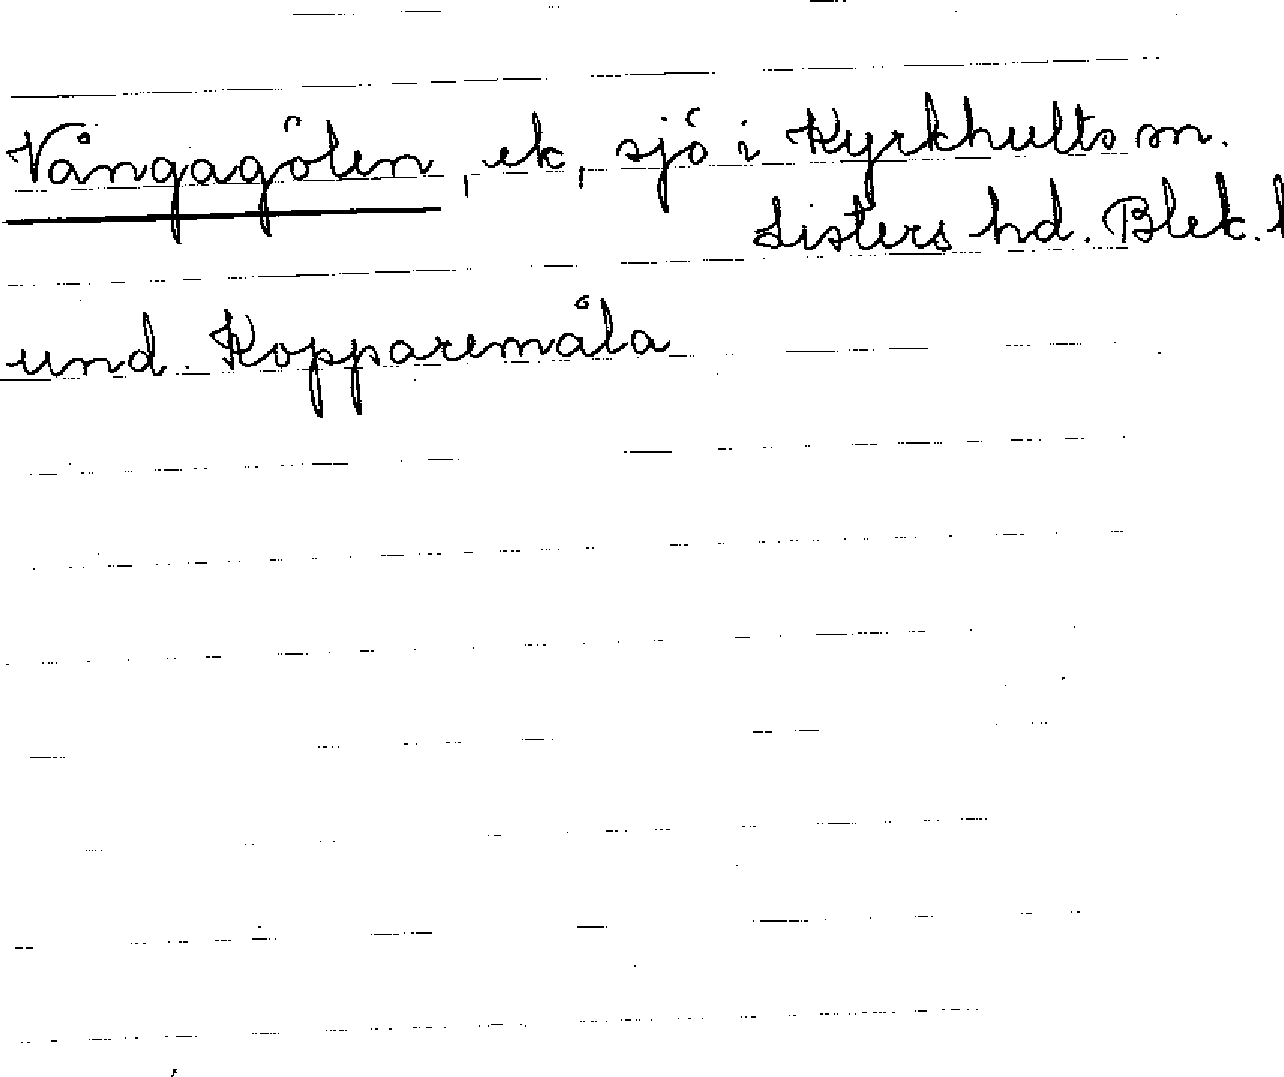 Vångagölen, ek, sjö i Kyrkhults sn.
Listers hd. Blek. l
und. Kopparemåla